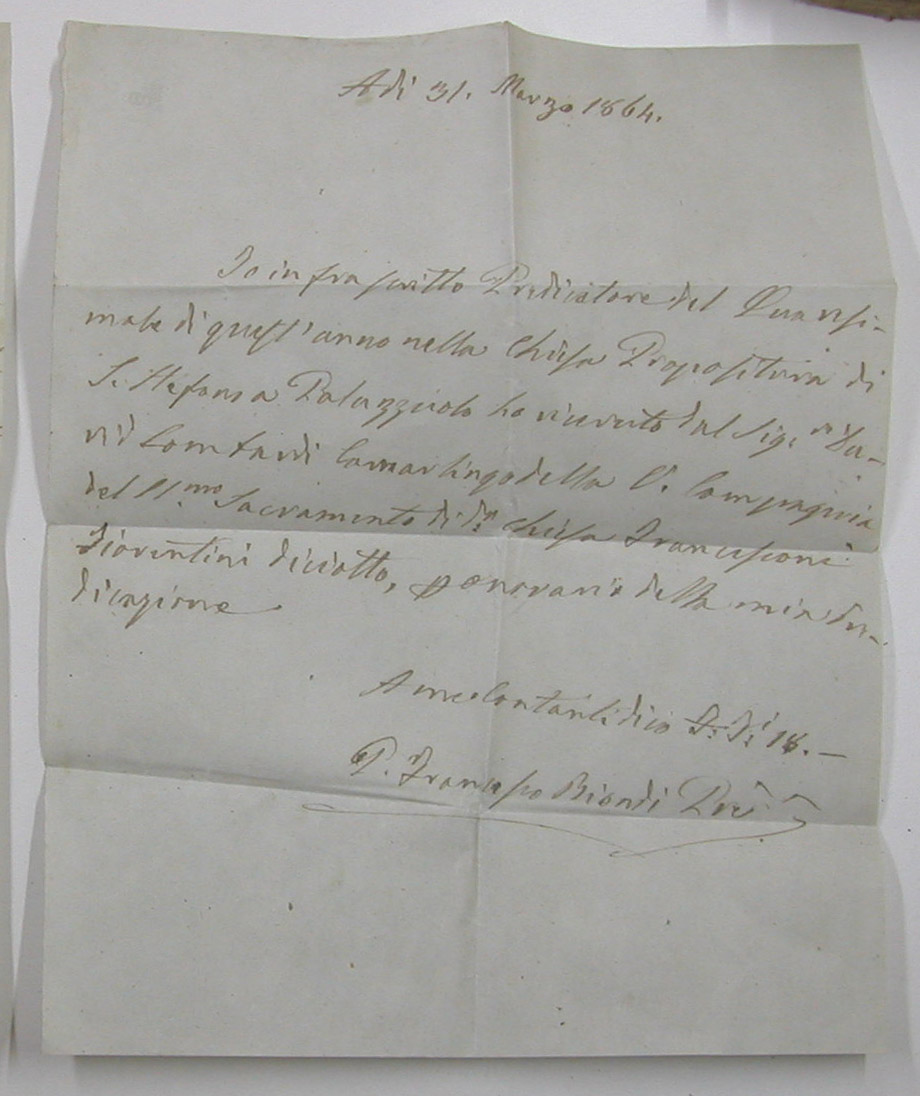 Adì 31. Marzo 1864.
Io infrascritto Predicatore del Quaresi-
male di quest'anno nella Chiesa Propositura di
S. Stefano a Palazzuolo ho ricevuto dal Sig.r Da-
vid Lombardi Camarlingo della V. Compagnia
del SSmo Sacramento di da Chiesa Francesconi
Fiorentini diciotto, p onorario della mia Pre-
dicazione.
A me Contanti dico 18.—
P. Francesco Biondi